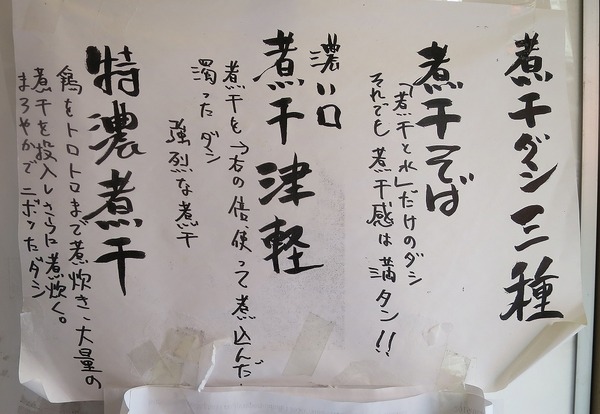 煮干ダシ三種
煮干そば
「煮干と水」だけのダシ
それでも煮干感は満タン!!
濃い口
煮干津軽
煮干を→右の倍、使って煮込んだ
濁ったダシ
強烈な煮干
特濃煮干
鶏をトロトロまで煮炊き、大量の
煮干を投入しさらに煮炊く。
まろやかでニボッたダシ